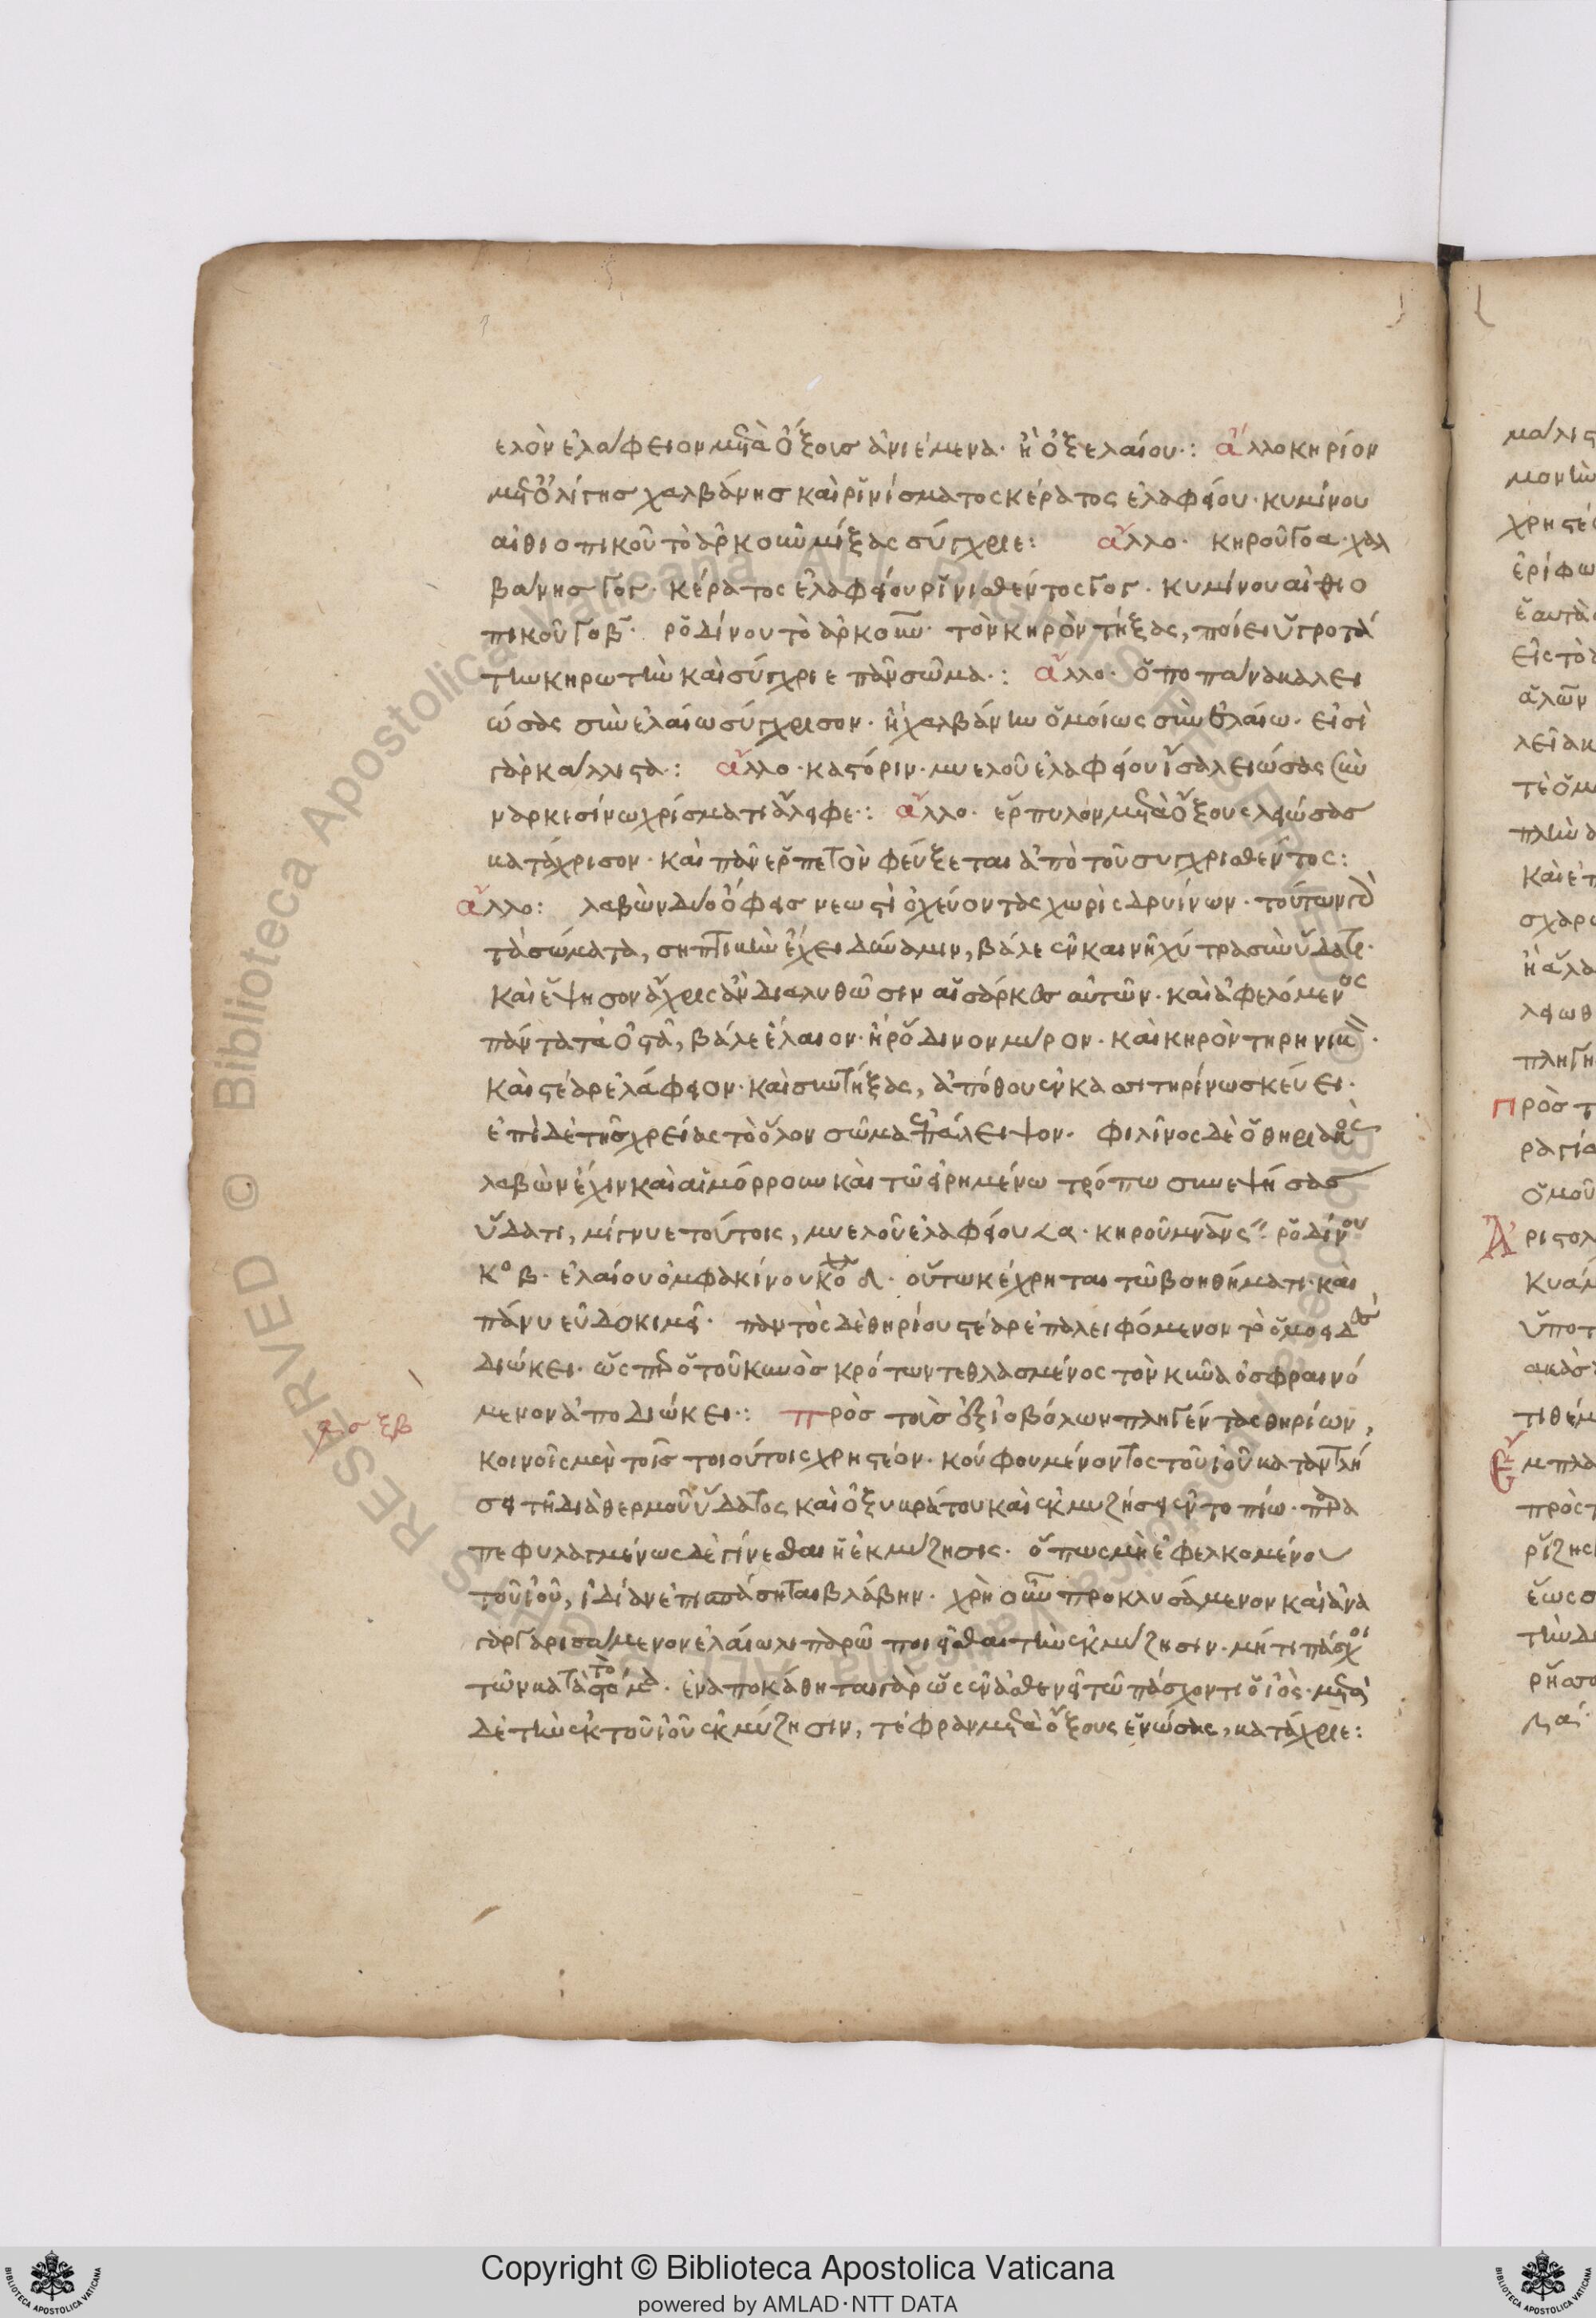 ελὸν ἐλάφειον μετὰ ὄξους ἀνιέμενα· ἢ ὀξελαίου·: ἄλλο κηρίον
μετ' ὀλίγης χαλβάνης καὶ ῥινίσματος κέρατος ἐλαφείου· κυμίνου
αἰθιοπικοῦ τὸ ἀρκοῦν μίξας σύγχριε: ἄλλο· κηροῦ γο α· χαλ
βάνης γο γ· κέρατος ἐλαφείου ῥινισθέντος γο γ· κυμίνου αἰθιο
πικοῦ γο β· ῥοδίνου τὸ ἀρκοῦν· τὸν κηρὸν τήξας, ποίει ὑγροτά
την κηρωτὴν καὶ σύγχριε πᾶν σῶμα·: ἄλλο· ὀποπάνακα λει
ώσας σὺν ἐλαίω σύγχρισον· ἢ χαλβάνην ὁμοίως σὺν ἐλαίω· εἰσὶ
γὰρ κάλλιστα·: ἄλλο· καστόριν· μυελοῦ ἐλαφείου ἶσα λειώσας σὺν
ναρκισίνω χρίσματι ἄλειφε·: ἄλλο· ἕρπυλον μετὰ ὄξους λειώσας
κατάχρισον· καὶ πᾶν ἑρπετὸν φεύξεται ἀπὸ τοῦ συγχρισθέντος:
ἄλλο: λαβὼν δύο ὄφεις νεωστὶ ὀχεύοντας χωρὶς δρυίνων· τούτων γὰρ
τὰ σώματα, σηπτικὴν ἔχει δύναμιν, βάλε ἐν καινῆ χύτρα σὺν ὕδατι·
καὶ ἕψησον ἄχρις ἂν διαλυθῶσιν αἱ σάρκες αὐτῶν· καὶ ἀφελόμενος
πάντα τὰ ὀστᾶ, βάλε ἔλαιον· ἢ ῥόδινον μύρον· καὶ κηρὸν τηρηνικ·
καὶ στέαρ ἐλάφειον· καὶ συντήξας, ἀπόθου ἐν κασσιτηρίνω σκεύει·
ἐπὶ δὲ τῆς χρείας τὸ ὅλον σῶμα ἐπάλειψον· φιλῖνος δὲ ὁ θηριακὸς
λαβὼν ἔχιν καὶ αἱμόρροον καὶ τῶ εἰρημένω τρόπω συνεψήσας
ὕδατι, μίγνυε τούτοις, μυελοῦ ἐλαφείου < α· κηροῦ μνᾶν ς· ῥοδίνου
κο β· ἐλαίου ὀμφακίνου κο δ· οὕτω κέχρηται τῶ βοηθήματι· καὶ
πάνυ εὐδοκιμεῖ· παντὸς δὲ θηρίου στέαρ ἐπαλειφόμενον τὸ ὁμοειδὲς
διώκει· ὡς ὁ τοῦ κυνὸς κρότων τεθλασμένος τὸν κύνα ὀσφραινό
μενον ἀποδιώκει·: πρὸς τοὺς ὑξ ἰοβόλων πληγέντας θηρίων,
κοινοῖς μὲν τοῖς τοιούτοις χρηστέον· κουφουμένου τοῦ ἰοῦ καταντλή
σει τῆ διὰ θερμοῦ ὕδατος καὶ ὀξυκράτου καὶ ἐκμυζήσει ἐν τοπίω·
πεφυλαγμένως δὲ γίνεσθαι ἡ ἐκμύζησις· ὅπως μὴ ἐφελκομένου
τοῦ ἰοῦ, ἰδίαν ἐπισπάσηται βλάβην· χρὴ οὖν προκλυσάμενον καὶ ἀνα
γαργαρισάμενον ἐλαίω λιπαρῶ ποιεῖσθαι τὴν ἐκμύζησιν· μή τι πάσχοι
τῶν κατὰ τὸ στόμα· ἐναποκάθηται γὰρ ὡς ἐν ἀσθενεῖ τῶ πάσχοντι ὁ ἰός· μετὰ
δὲ τὴν ἐκ τοῦ ἰοῦ ἐκμύζησιν, τέφραν μετὰ ὄξους ἑνώσας, κατάχριε:
ξβ
Copyright © Biblioteca Apostolica Vaticana
powered by AMLAD·NTT DATA